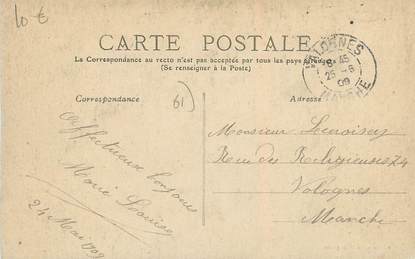 10 €
CARTE POSTALE
La Correspondance au recto n'est pas acceptée par tous les pays étrangers
(Se renseigner à la Poste)
VALOGNES
6 45
25 - 5
09
MANCHE
Correspondance
61
Adresse
Affectueux bonjours
Marie Louise
24 Mai 1909
Monsieur Lecroisey
Rue des Religieuses 74
Valognes
Manche